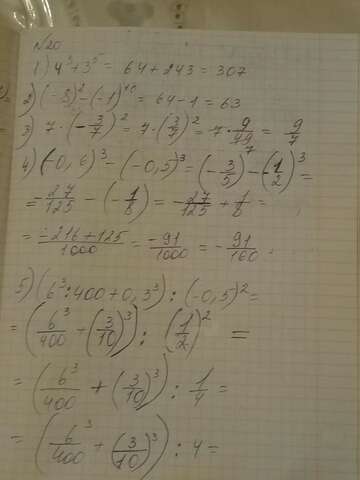 №20
1) 4³+3⁵ = 64+243 = 307
2) (-8)² - (-1)¹⁰ = 64-1 = 63
3) 7·(-3/7)² = 7·(3/7)² = 7·9/49 7 = 9/7
4) (-0,6)³-(-0,5)³=(-3/5)³-(-1/2)³=
= -27/125 - (-1/8) = -27/125 + 1/8 =
= -216+125/1000 = -91/1000 = -91/160.
5) (6³:400+0,3³):(-0,5)²=
= (6³/400 + (3/10)³) : (1/2)² =
= (6³/400 + (3/10)³) : 1/4 =
= (6³/400 + (3/10)³) : 4 =